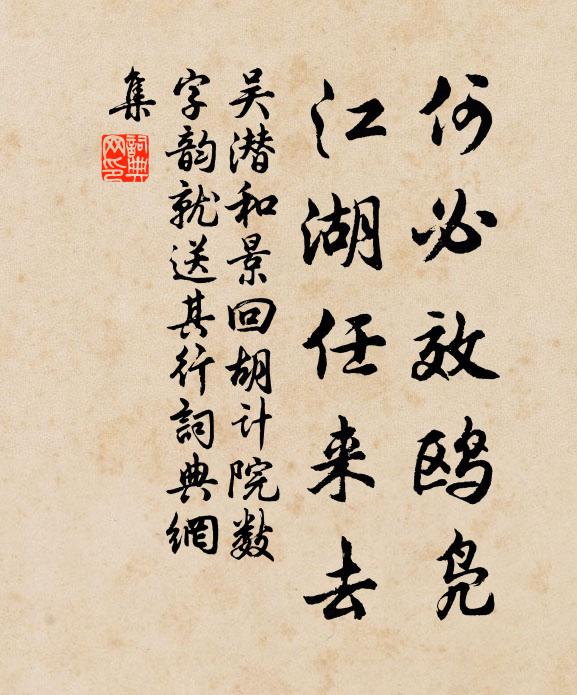 何必效鸥凫
江湖任来去
吴潜和景回胡计院数
字韵就送其行詞典網
集
詞典網印